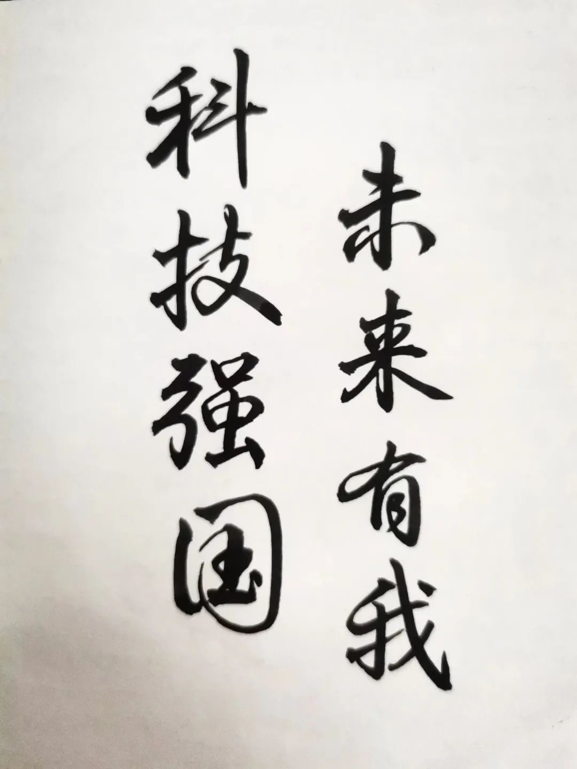 科技强国
未来有我